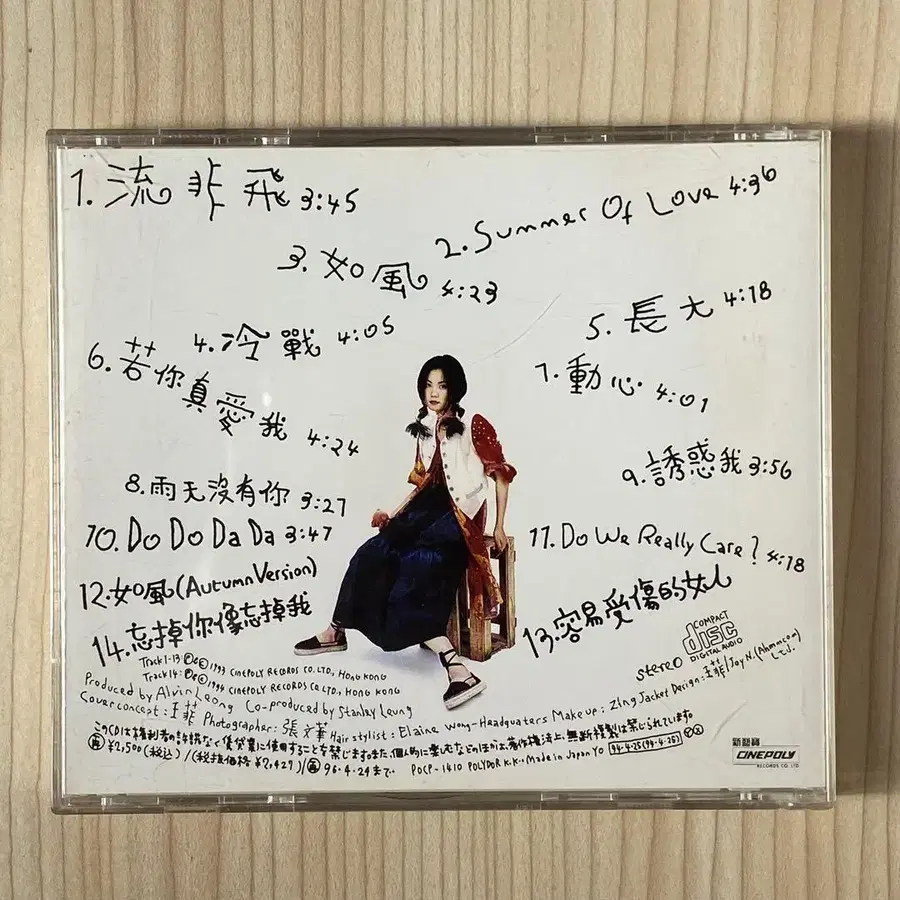 1. 流非飛 3:45
2. Summer Of Love 4:36
3. 如風 4:23
4. 冷戰 4:05
5. 長大 4:18
6. 若你真愛我 4:24
7. 動心 4:01
8. 雨天沒有你 3:27
9. 誘惑我 3:56
10. Do Do Da Da 3:47
11. Do We Really Care? 4:18
12. 如風(Autumn Version)
13. 容易受傷的女人
14. 忘掉你像忘掉我
COMPACT
disc
DIGITAL AUDIO
stereo
Track 1-13: ℗&© 1993 CINEPOLY RECORDS CO. LTD., HONG KONG
Track 14: ℗&© 1994 CINEPOLY RECORDS CO. LTD., HONG KONG
Produced by Alvin Leong Co-produced by Stanley Leung
Cover concept: 王菲 Photographer: 張文華 Hair stylist: Elaine Wong-Headquaters Make up: Zing Jacket Design: 王菲/Joy N. (Ahmm.com) Ltd.
このCDは権利者の許諾なく賃貸業に使用することを禁じます。また、個人的に楽しむなどのほかは、著作権法上、無断複製は禁じられています。
¥2,500(税込)/(税抜価格 ¥2,427)/再 96・4・24まで POCP-1410 POLYDOR K.K.・Made in Japan YO 94・4・25(94・4・25)
新藝寶
CINEPOLY
RECORDS CO. LTD